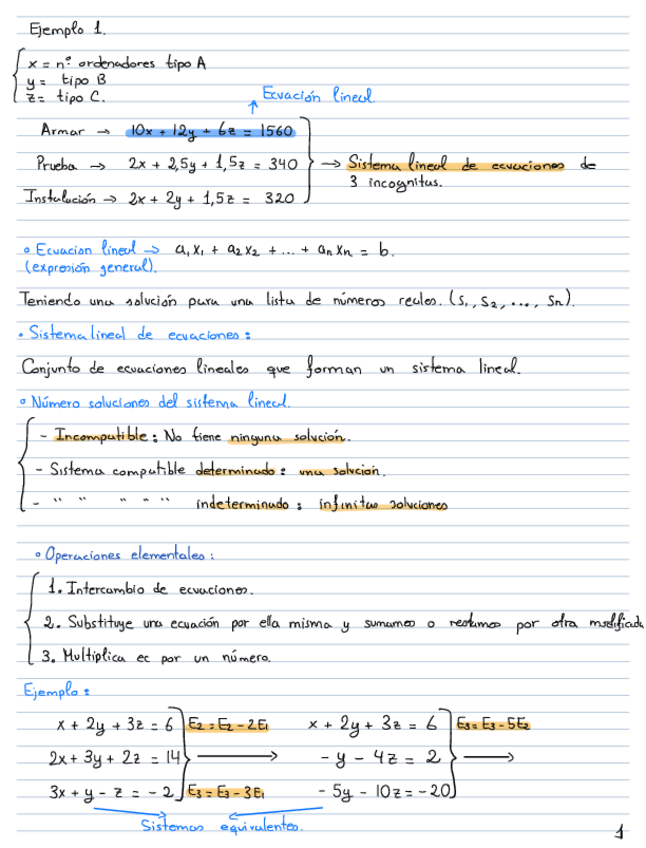 Ejemplo 1.
x = nº ordenadores tipo A
y = tipo B
z = tipo C.
Ecuación lineal.
Armar → 10x + 12y + 6z = 1560
Prueba → 2x + 2,5y + 1,5z = 340 → Sistema lineal de ecuaciones de
3 incognitas.
Instalación → 2x + 2y + 1,5z = 320
Ecuacion lineal → a₁x₁ + a₂x₂ + ... + aₙxₙ = b.
(expresión general).
Teniendo una solución para una lista de números reales. (s₁, s₂, ..., sₙ).
• Sistema lineal de ecuaciones:
Conjunto de ecuaciones lineales que forman un sistema lineal.
Número soluciones del sistema lineal.
- Incompatible: No tiene ninguna solución.
- Sistema compatible determinado: una solución.
- " " " " " indeterminado: infinitas soluciones
Operaciones elementales:
1. Intercambio de ecuaciones.
2. Substituye una ecuación por ella misma y sumamos o restamos por otra modificada
3. Multiplica ec por un número.
Ejemplo:
x + 2y + 3z = 6 E₂ = E₂ - 2E₁ x + 2y + 3z = 6 E₃ = E₃ - 5E₂
2x + 3y + 2z = 14 → - y - 4z = 2 →
3x + y - z = -2 E₃ = E₃ - 3E₁ - 5y - 10z = -20
Sistemas equivalentes.
1